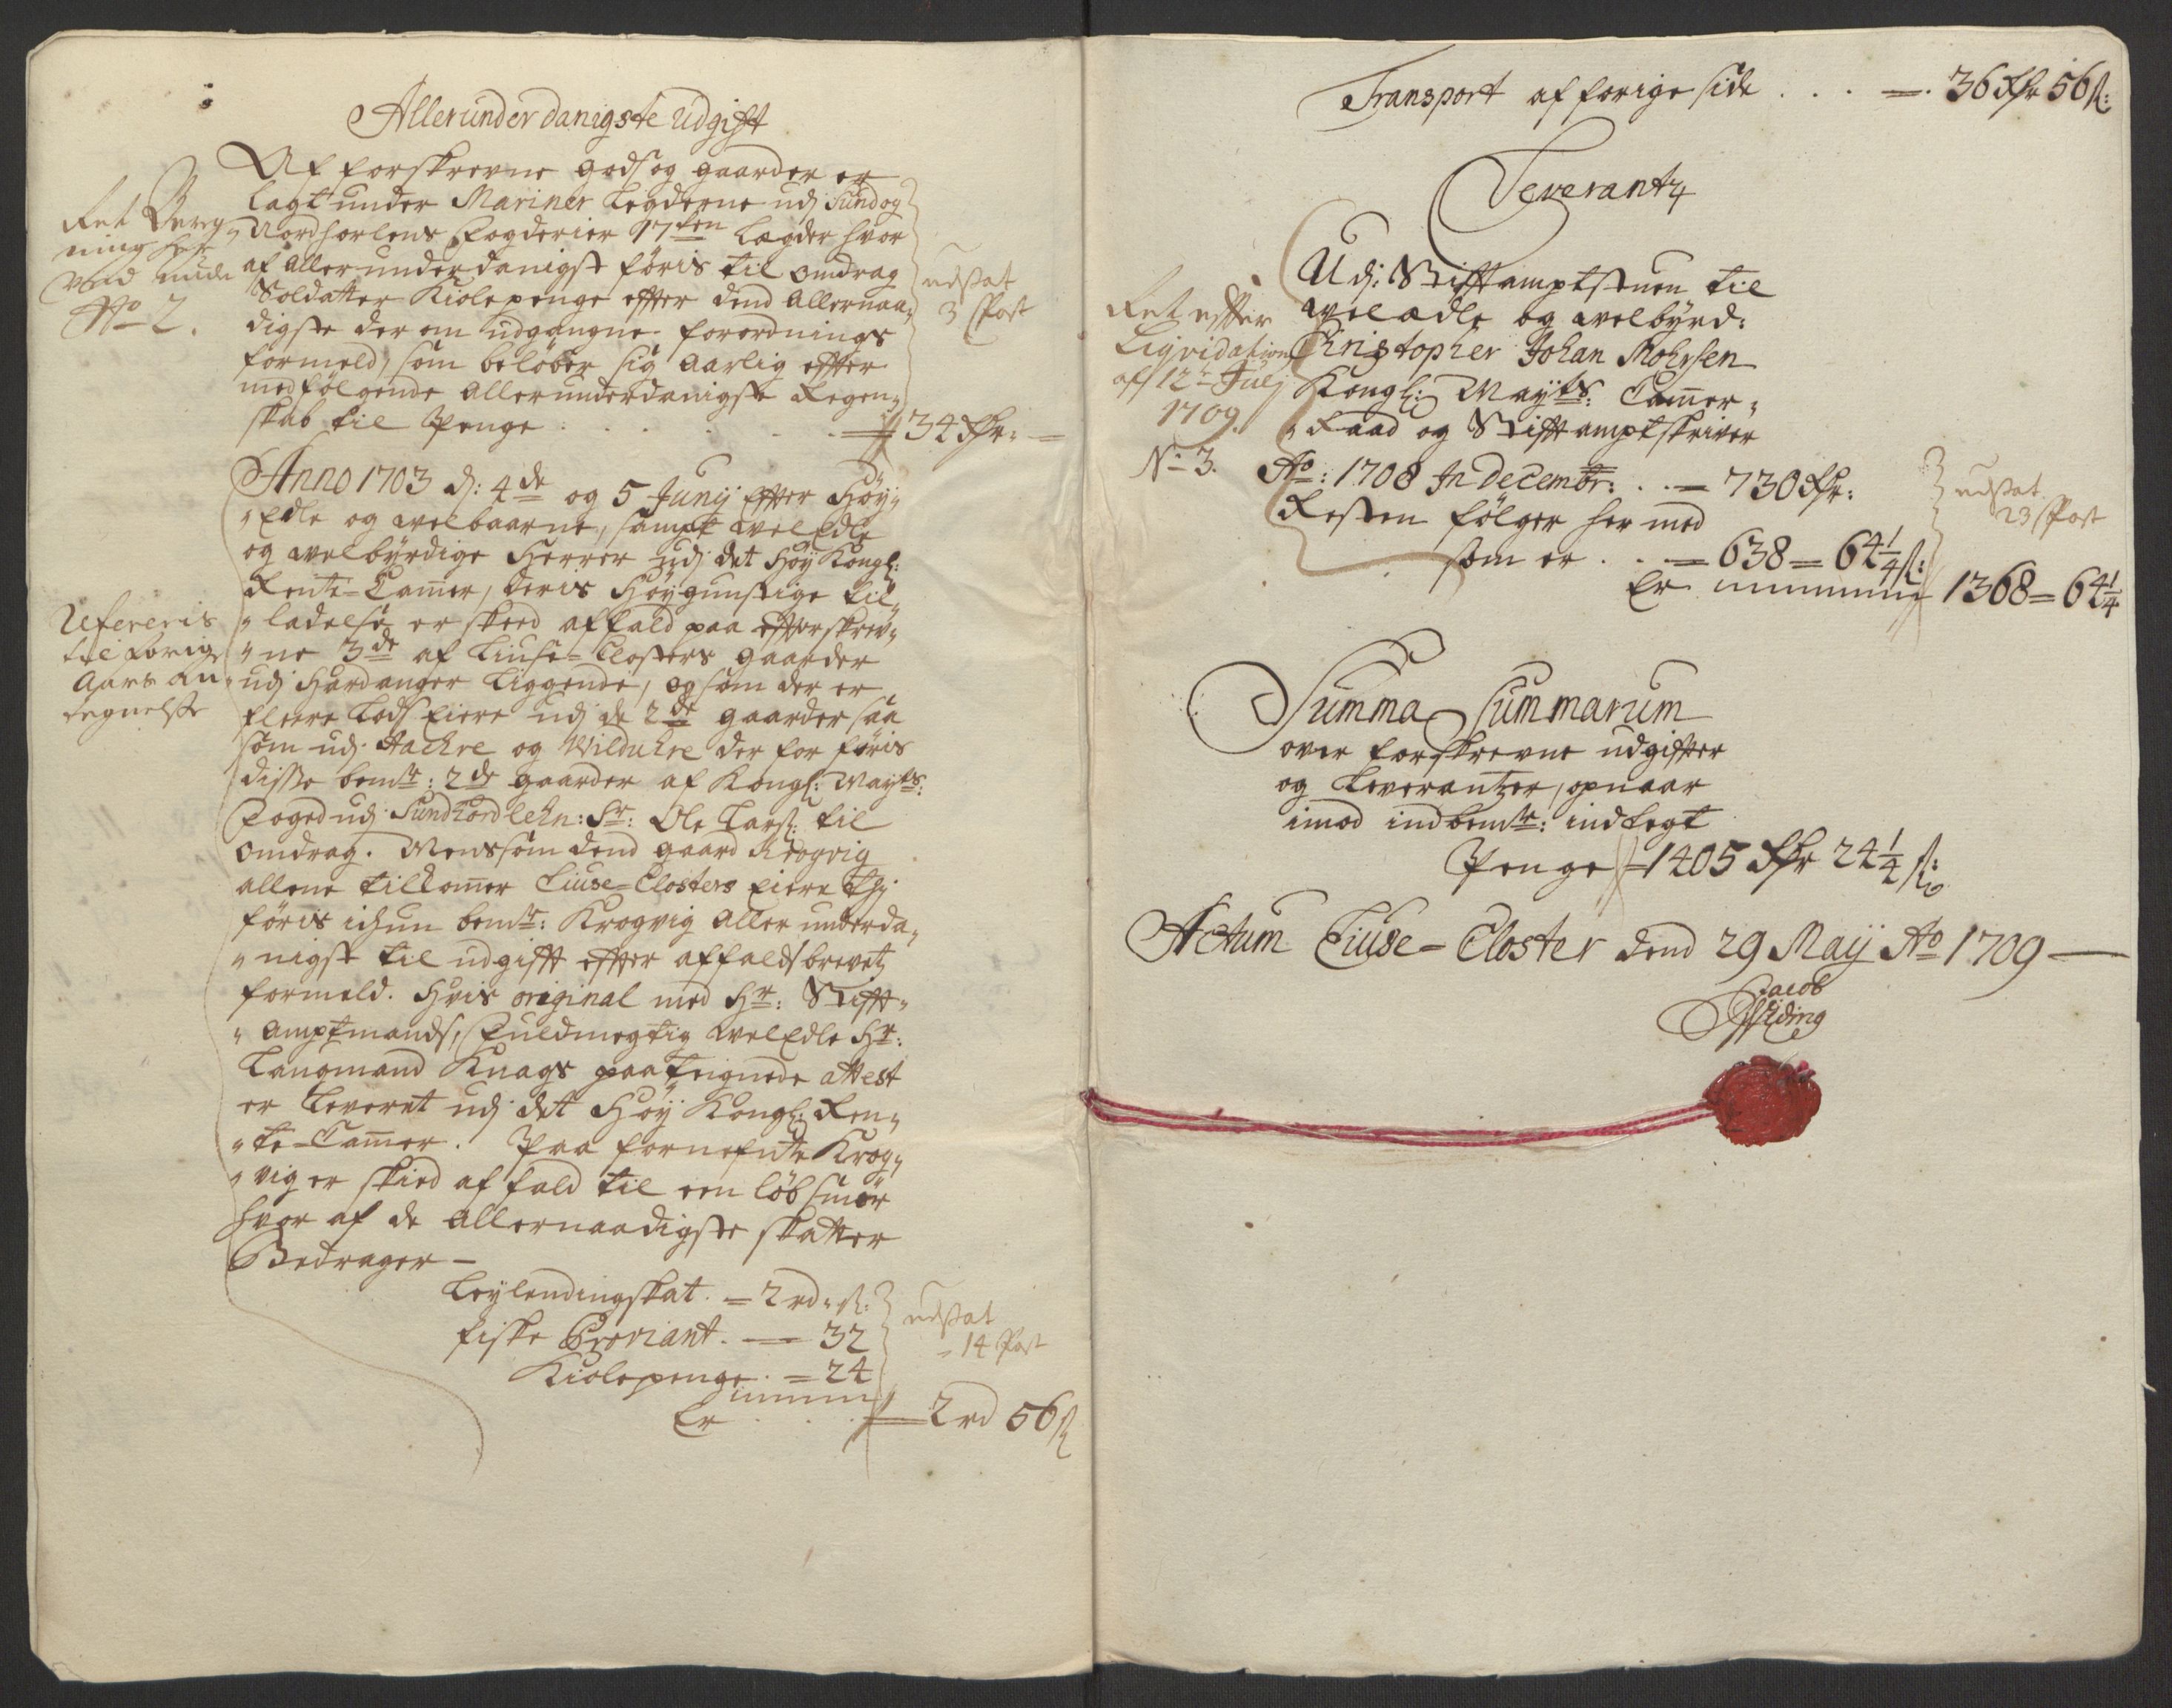 Allerunderdanigste Udgift
Af forskrevne gods og gaarder er
lagt under Mariner Legderne udj Sund og
Nordhorlens Fogderier 17ten Lægder hvor
af allerunderdanigst føris til omdrag
Soldatter Kiolepenge efter dend Allernaa¬
digste der om udgangne forordnings
formeld, som beløber sig aarlig efter
medfølgende allerunderdanigste Regen¬
skab til Penge . . . . 34 Rdr:
Ret Bereg¬
ning her
ved
No 2.
udsat
3 Post
Anno 1703 d: 4de og 5 Junij Efter Høy¬
Edle og velbaarne, sampt velEdle
og velbyrdige Herrer udj det Høy Kongl:
Rente-Camer, deris Høygunstige til¬
ladelse er skeed affald paa efterskrev¬
ne 3de af Liuse-Closters gaarder
udj Hardanger liggende, og som der er
fleere Lods Eiere udj de 2de gaarder saa
som udj Aachre og Wilduhre der for føris
disse bemte: 2de gaarder af Kongl: Mayts:
Foged udj Sundhordlehn: Sr: Ole Larsß: til
omdrag. Mens som dend gaard Krogvig
allene tilkomer Liuse-Closters Eiere thj
føris ichun bemte: Krogvig aller underda¬
nigst til udgifft efter affalds brevetz
formeld. Hvis original med Hr: Stifft¬
Amptmands, Fuldmegtig velEdle Hr:
Laugmand Knags paateignede attest
er leveret udj det Høy Kongl: Ren¬
te-Camer. Paa fornefnte Krog¬
vig er skied affald til een løb smør
hvor af de allernaadigste skatter
Bedrager —
Refereris
til forige
Aars an¬
tegnelse
Leylendingskat. = 2 rd " ß:
Fiske Proviant. — 32
Kiolepenge . = 24
Er . . . = 2 rd 56 ß
udsat
14 Post
Transport af forige side . . . =. 36 Rdr 56 ß:
Leverantz
Udj: Stifftamptstuen til
velædle og velbyrd:
Christopher Johan Mohrsen
Kongl: Mayts: Camer¬
Raad og Stifftamptskriver
Ao: 1708 In Decembr: . . = 730 Rdr:
Resten følger her med
som er . . . = 638 = 64 1/4 ß:
Er 1368 = 64 1/4
Ret efter
Liqvidation
af 12te Julj
1709.
No 3.
udsat
23 Post
Summa Summarum
over forskrevne udgifter
og Leverantzer, opnaar
imod indbemte: indtegt
Penge = 1405 Rdr 24 1/4 ß:
Actum Liuse-Closter dend 29 Maij Ao 1709 —
Jacob
Widing